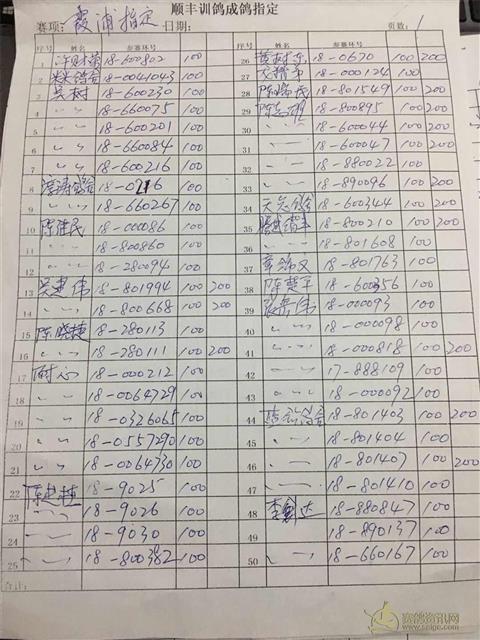 顺丰训鸽成鸽指定
赛项: 霞浦指定 日期: 页数: 1
序号 姓名 参赛环号
序号 姓名 参赛环号
1 18-600802 100
2 18-0041043 100
3 吴树 18-600230 100
4 〃 18-660075 100
5 〃 18-660201 100
6 〃 18-660084 100
7 〃 18-600216 100
8 18-0216 100
9 〃 18-660267 100
10 陈维民 18-00086 100
11 〃 18-800860 100
12 〃 18-280094 100
13 吴建伟 18-801994 100 200
14 〃 18-800668 100 200
15 陈晓捷 18-280113 100
16 〃 18-280111 100 200
17 耐心 18-000212 100
18 〃 18-0064729 100
19 〃 18-0326065 100
20 〃 18-0557290 100
21 〃 18-0064730 100
22 18-9025 100
23 〃 18-9026 100
24 〃 18-9030 100
25 〃 18-800382 100
合计:
26 黄树东 18-0670 100 200
27 18-000124 100
28 18-801549 100 200
29 18-800895 100 200
30 〃 18-600044 100 200
31 〃 18-600047 100 200
32 〃 18-880022 100
33 〃 18-890096 100 200
34 18-600344 100 200
35 18-800210 100 200
36 〃 18-801608 100
37 18-801763 100
38 陈楚平 18-600356 100
39 18-000093 100
40 〃 18-000098 100
41 〃 18-000818 100 200
42 〃 17-888109 100
43 〃 18-000092 100
44 18-801403 100 200
45 〃 18-801404 100
46 〃 18-801407 100 200
47 〃 18-801410 100
48 18-880847 100
49 18-890137 100
50 〃 18-660167 100
赛鸽资讯网
www.saige.com